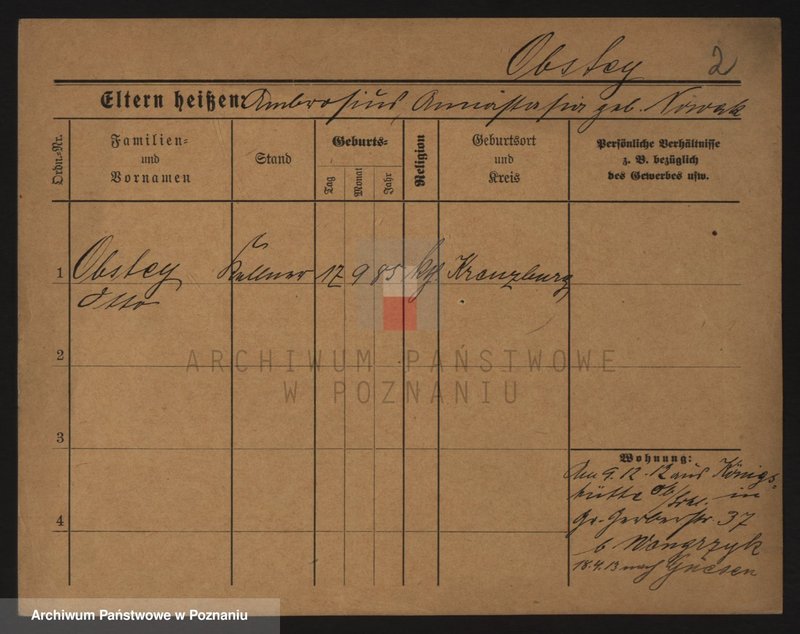 Obstey 2
Eltern heißen: Ambrosius, Annastasia geb. Nowak
Ordn.-Nr.
Familien-
und
Vornamen
Stand
Geburts-
Tag
Monat
Jahr
Religion
Geburtsort
und
Kreis
Persönliche Verhältnisse
z. B. bezüglich
des Gewerbes usw.
1 Obstey Kellner 17 9 85 kg. Kreuzburg
Otto
2
3
4
Wohnung:
Am 9.12.12 aus Königs-
hütte o/Schl. in
Gr. Gerberstr. 37
b Wongrzyk
18.4.13 nach Gnesen
ARCHIWUM PAŃSTWOWE
W POZNANIU
Archiwum Państwowe w Poznaniu